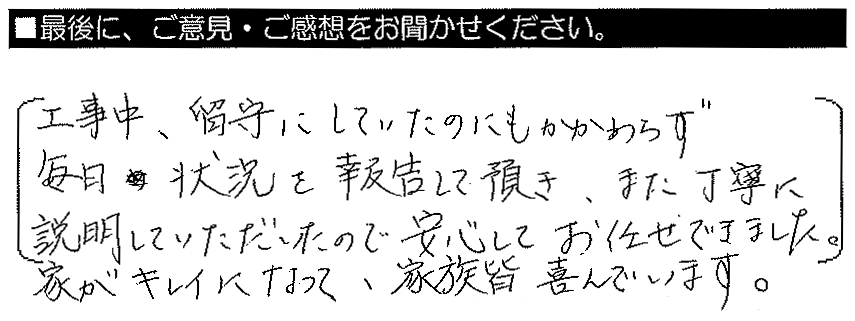 ■最後に、ご意見・ご感想をお聞かせください。
工事中、留守にしていたのにもかかわらず
毎日 状況を報告して預き、また丁寧に
説明していただいたので安心してお任せできました。
家がキレイになって、家族皆喜んでいます。